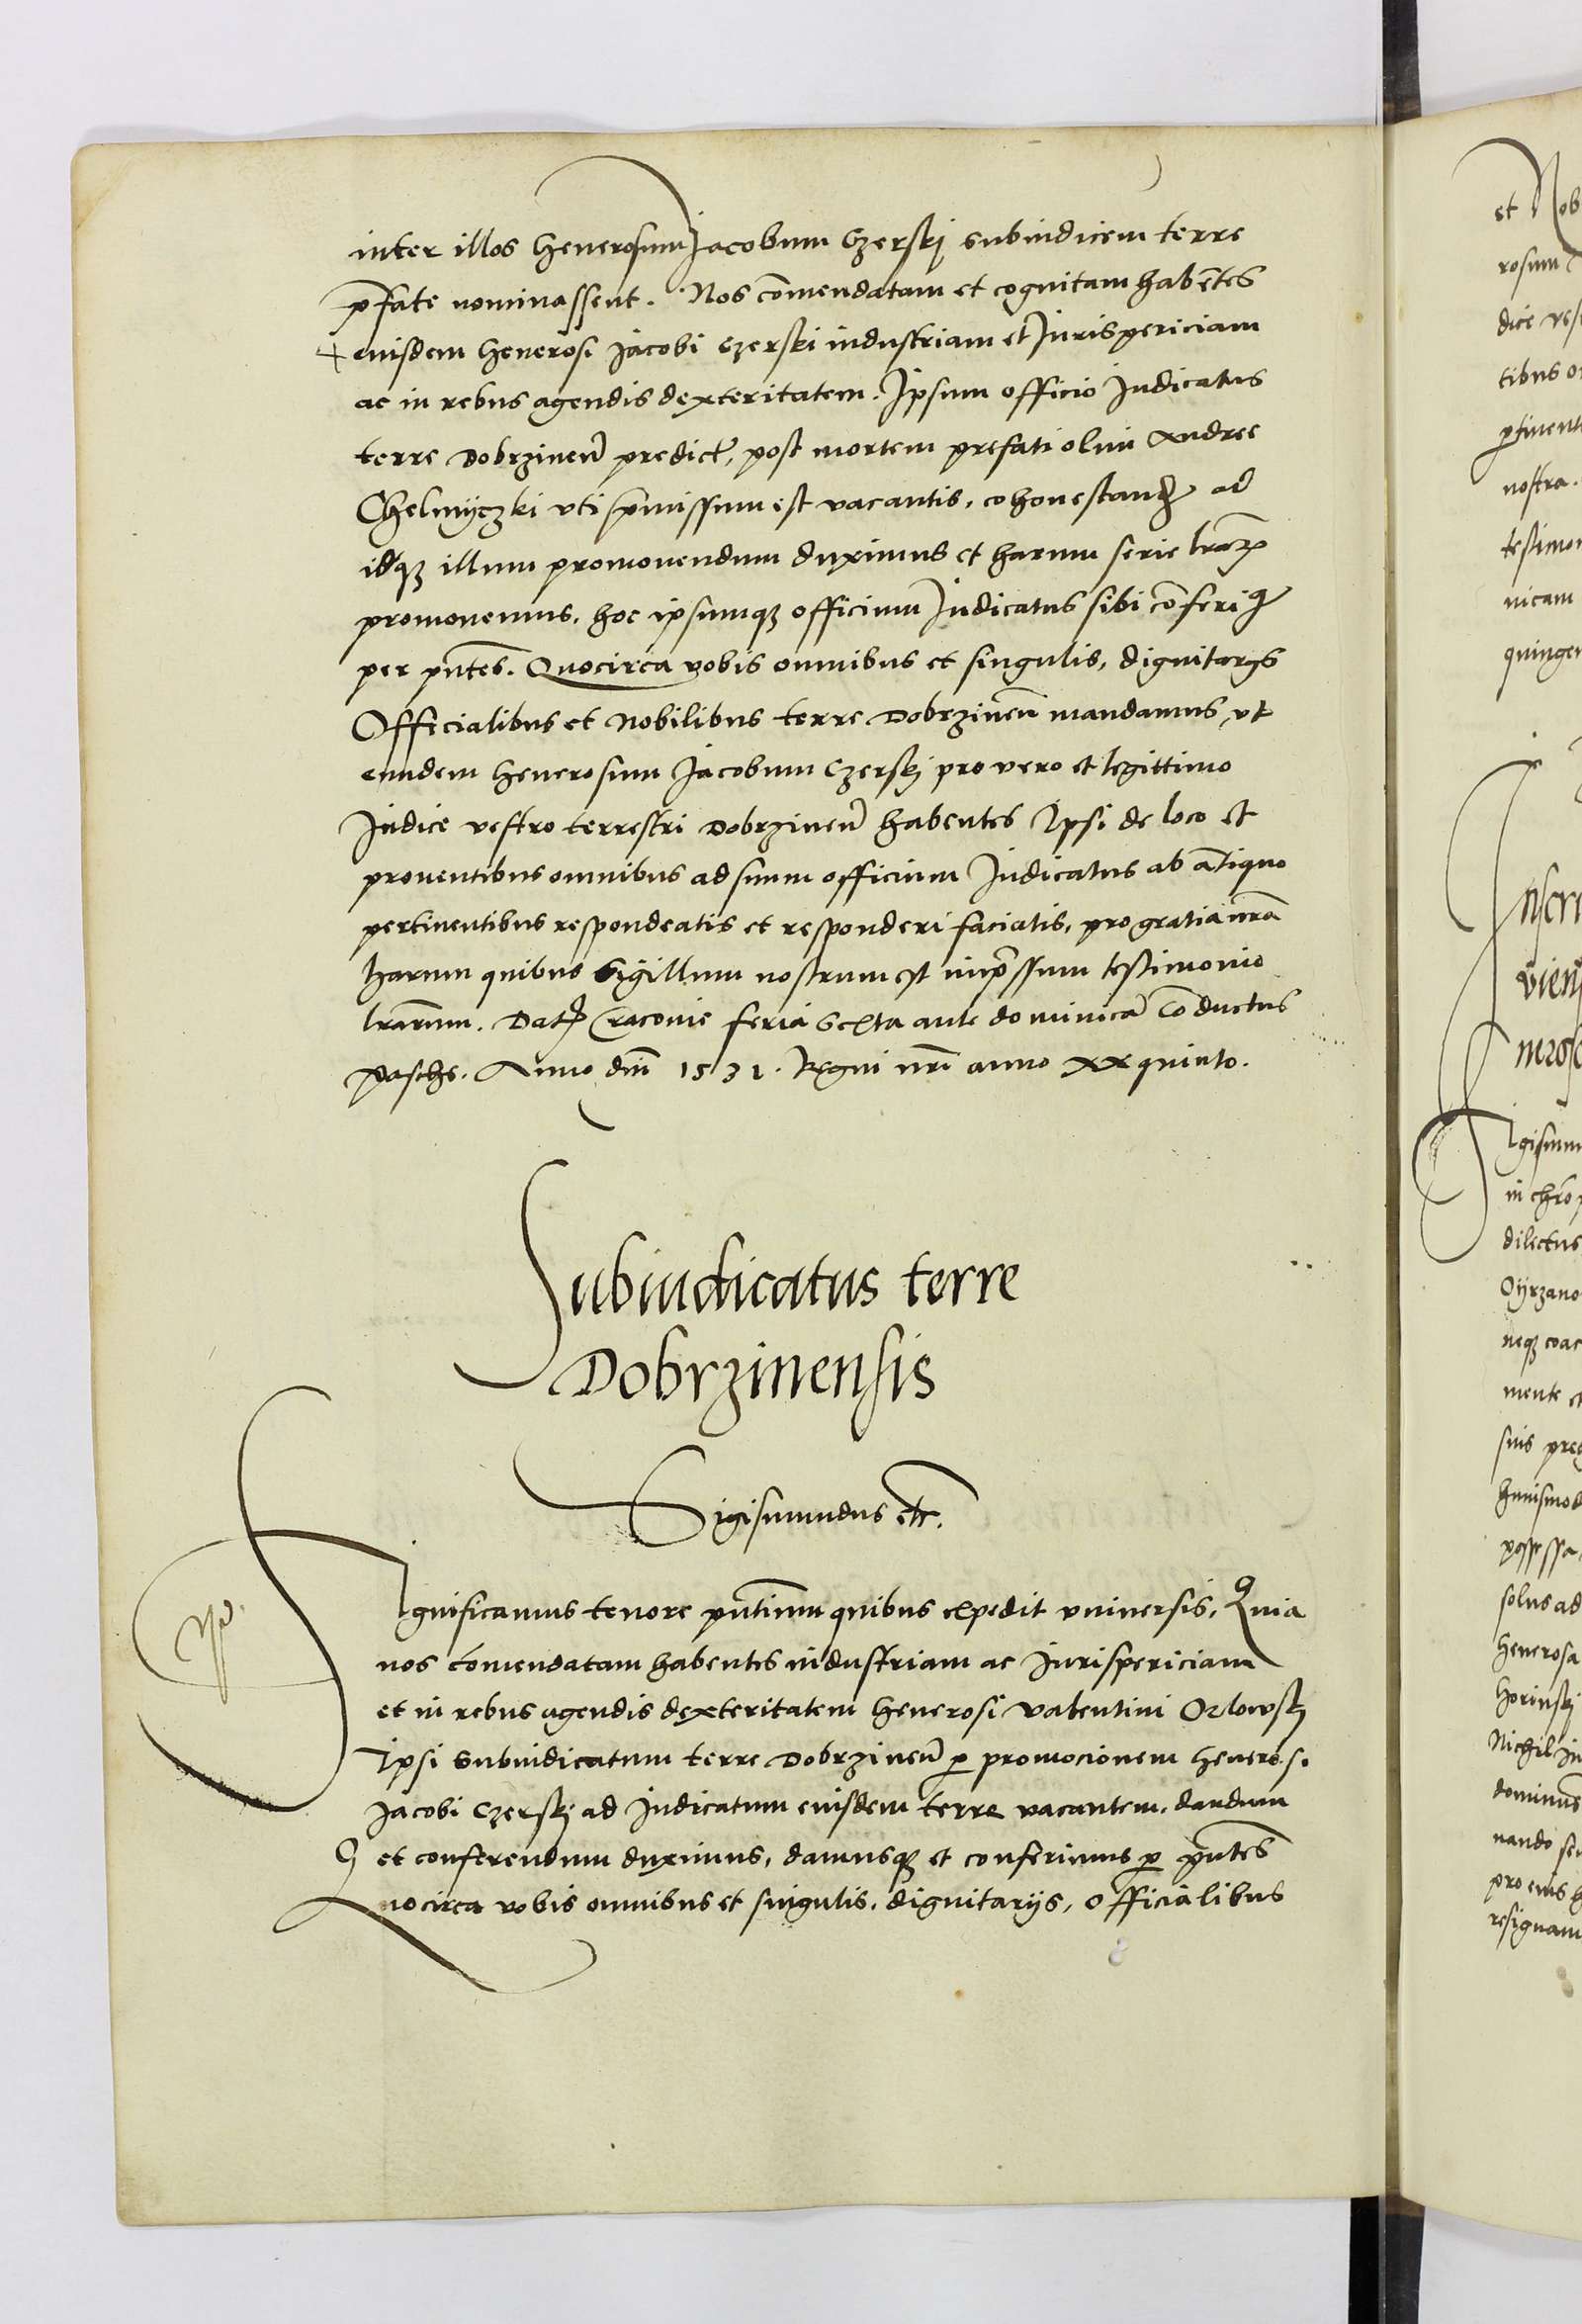 inter illos Generosum Jacobum Czerskj subiudicem terre
p̄fate nominassent. Nos cōmendatam et cognitam habētes
euisdem Generosi Jacobi Czerski industriam et Jurispericiam
ac in rebus agendis dexteritatem. Ipsum officio Judicatus
terre Dobrzineñ predictę, post mortem prefati olim Andree
Chelmyczki vti p̄missum est vacantis, cohonestand ad
idqȝ illum promouendum duximus et harum serie lr̄aꝝ
promouemus, hoc ipsumqȝ officium Judicatus sibi cōferimꝰ
per pn̄tes. Quocirca vobis omnibus et singulis, dignitarijs
Officialibus et Nobilibus terre Dobrzineñ mandamus, vt
eundem Generosum Jacobum Czerskj pro vero et legittimo
Judice vestro terrestri Dobrzineñ habentes Ipsi de loco et
prouentibus omnibus ad suum officium Judicatus ab āntiquo
pertinentibus respondeatis et responderi faciatis, pro gratia nr̄a
harum quibus Sigillum nostrum est imp̄ssum testimonio
lr̄arum. Dat Cracouie feria Sexta ante dominicā Cōductus
Pasche. Anno dn̄i 1531. Regni nr̄i anno XX quinto.
Subiudicatus terre
Dobrzinensis
Sigismundus etc.
Significamus tenore pn̄tium quibus expedit vniuersis, Quia
nos cōmendatam habentes industriam ac Jurispericiam
et in rebus agendis dexteritatem Generosi Valentini Orlowskj
Ipsi Subiudicatum terre Dobrzineñ ꝑ promocionem Generosi
Jacobi Czerskj ad Judicatum euisdem terre vacantem, dandum
et conferendum duximus, damusqȝ et conferimus ꝑ pn̄tes
Quocirca vobis omnibus et singulis, dignitarijs, officialibus
et Nob
rosum
dice ves
tibus o
ꝑtinenti
nostra.
testimon
nicam
quingen
Inscri
vien
neros
Sigismun
in chr̄o
dilectus
Oyrzano
neqȝ coac
mente et
suis
huiusmod
possessa
solus ad
Generosa
Gorinskj
Nichil Ju
dominus
nando
pro eius
resignam